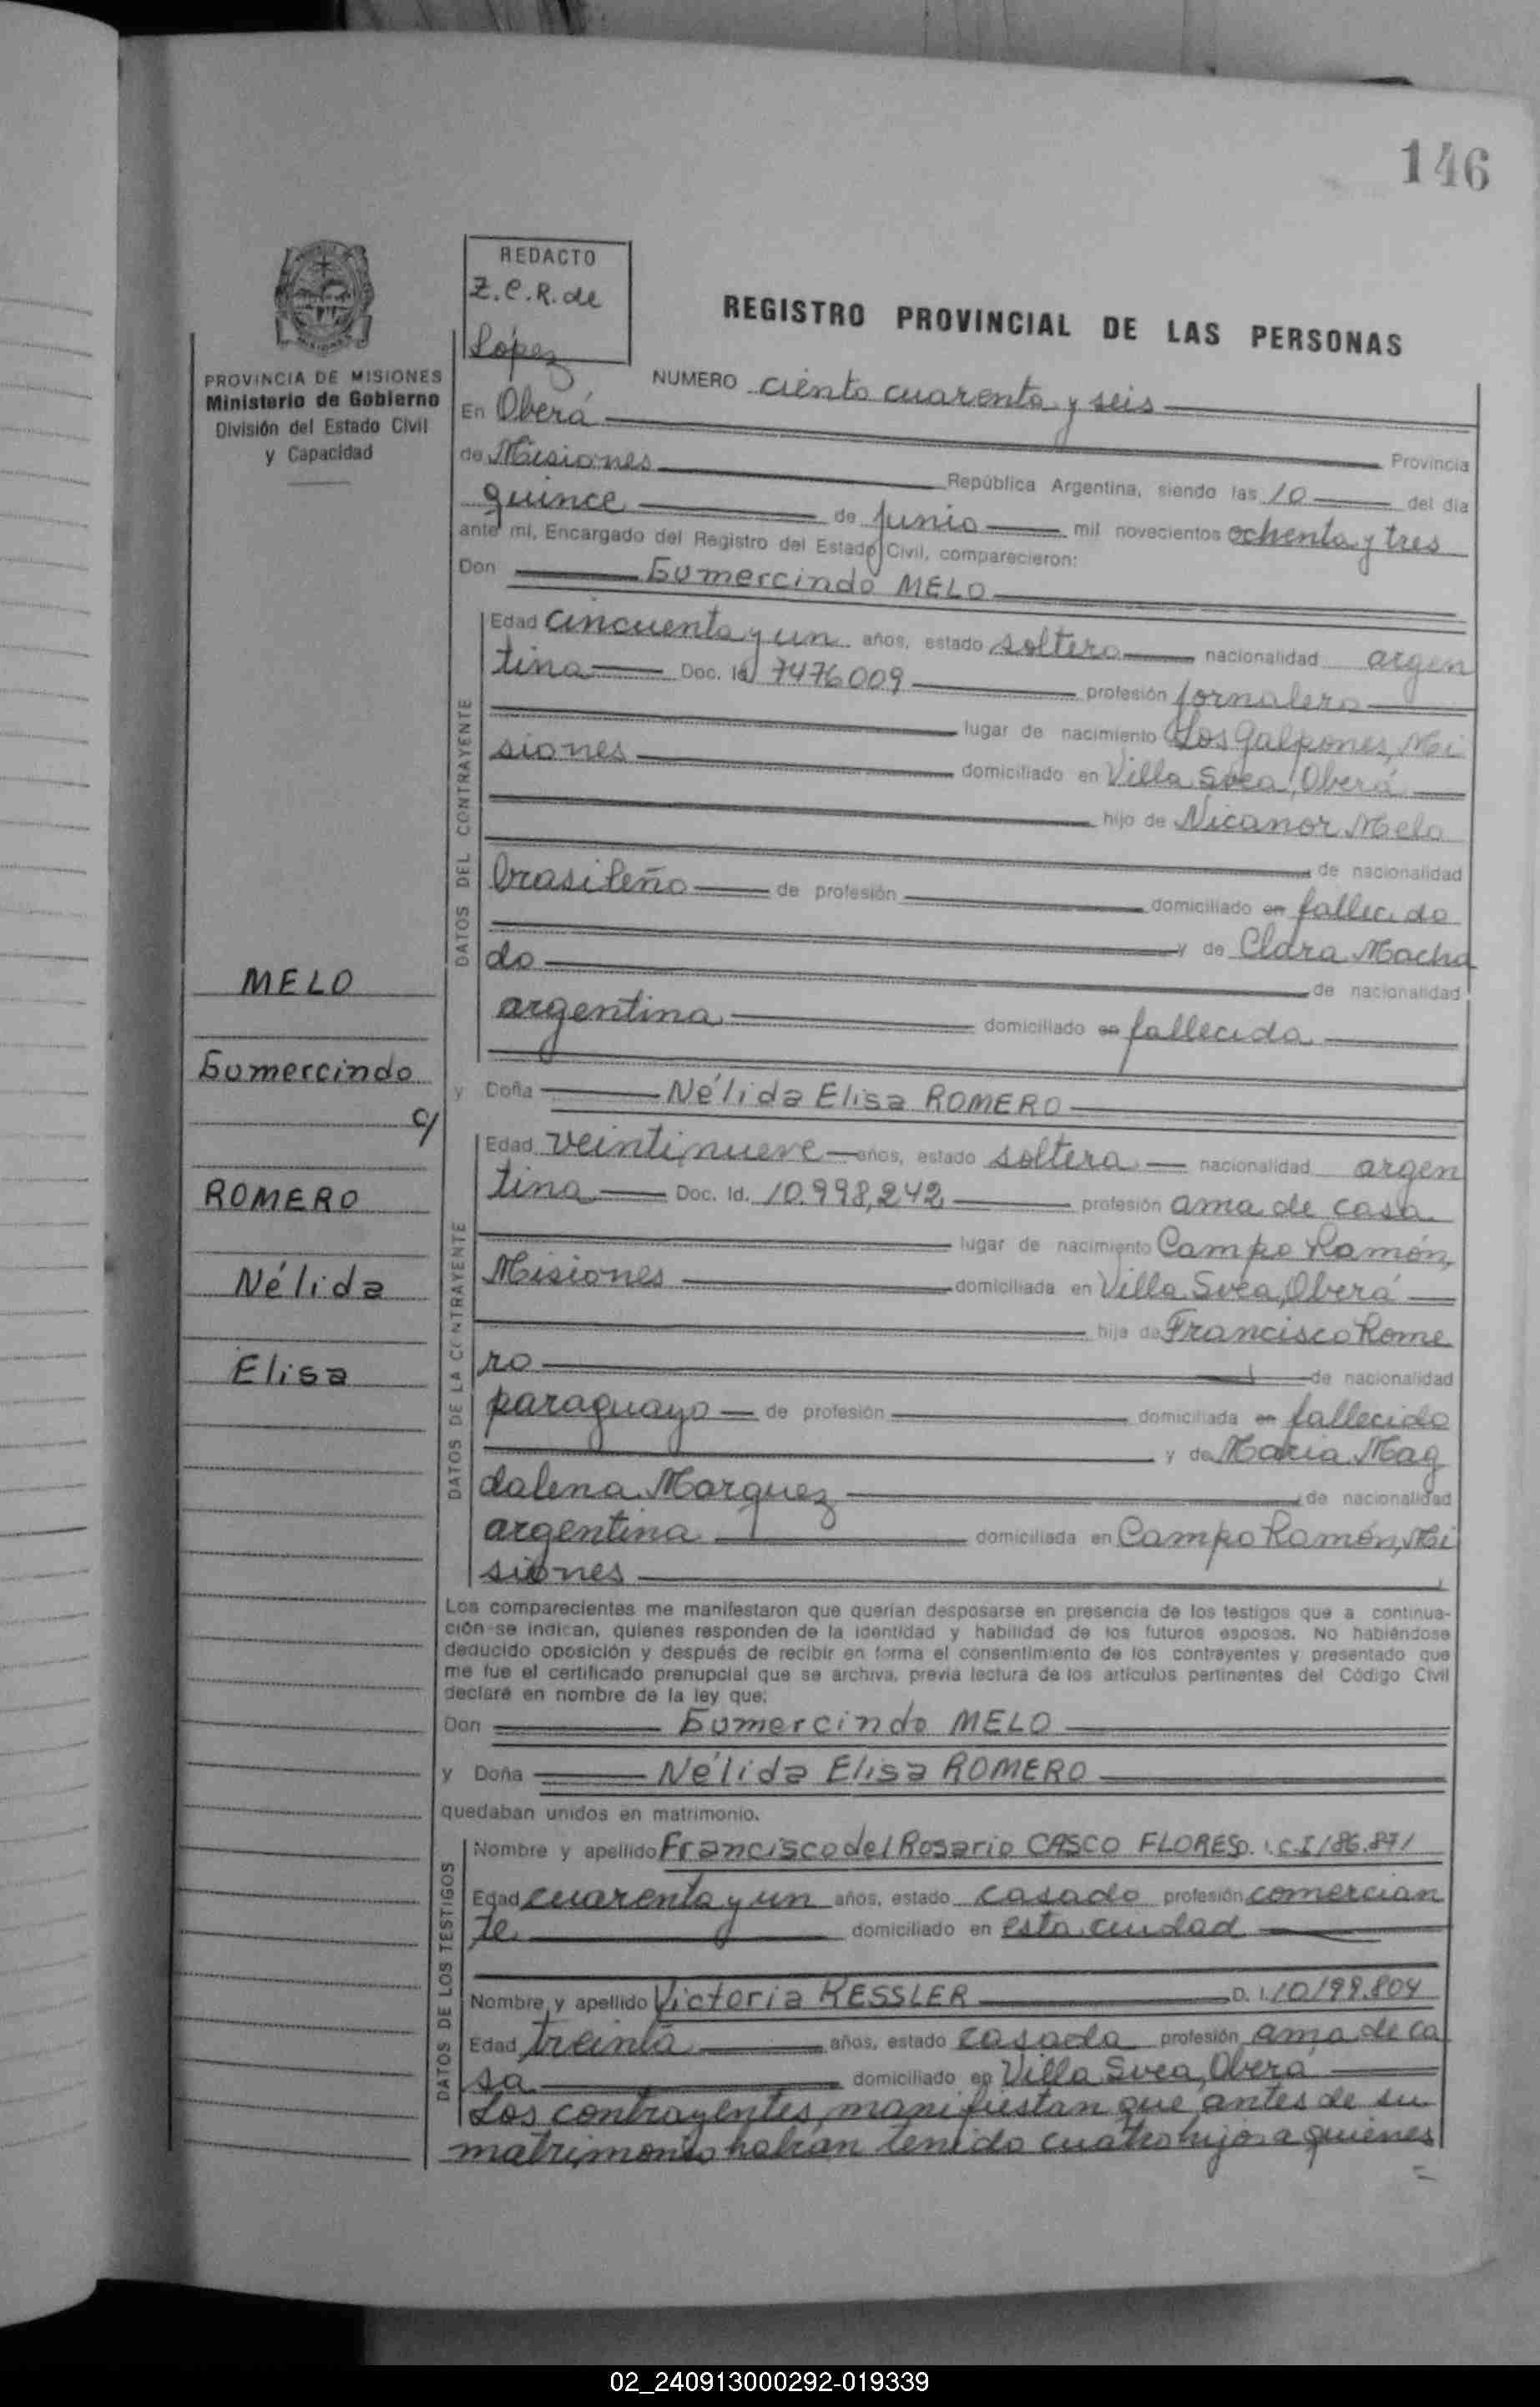 146
REDACTO
Z.C.R. de
López
REGISTRO PROVINCIAL DE LAS PERSONAS
PROVINCIA DE MISIONES
Ministerio de Gobierno
División del Estado Civil
y Capacidad
NUMERO ciento cuarenta y seis
En Oberá Provincia
de Misiones República Argentina, siendo las 10 del dia
quince de junio mil novecientos ochenta y tres
ante mi, Encargado del Registro del Estado Civil, comparecieron:
Don Gumercindo MELO
DATOS DEL CONTRAYENTE
Edad cincuenta y un años, estado soltero nacionalidad argen
tina Doc. Id 7476009 profesión jornalero
lugar de nacimiento Los Galpones, Mi
siones domiciliado en Villa Svea, Oberá
hijo de Nicanor Melo
de nacionalidad
brasileño de profesión domiciliado en fallecido
y de Clara Macha
do de nacionalidad
argentina domiciliado en fallecida
MELO
Gumercindo
c/
ROMERO
Nélida
Elisa
y Doña Nélida Elisa ROMERO
DATOS DE LA CONTRAYENTE
Edad veintinueve años, estado soltera nacionalidad argen
tina Doc. Id. 10.998,242 profesión ama de casa
lugar de nacimiento Campo Ramón,
Misiones domiciliada en Villa Svea, Oberá
hija de Francisco Rome
ro de nacionalidad
paraguayo de profesión domiciliada en fallecido
y de Maria Mag
dalena Marquez de nacionalidad
argentina domiciliada en Campo Ramón, Mi
siones
Los comparecientes me manifestaron que querían desposarse en presencia de los testigos que a continua-
ción se indican, quienes responden de la identidad y habilidad de los futuros esposos. No habiéndose
deducido oposición y después de recibir en forma el consentimiento de los contrayentes y presentado que
me fue el certificado prenupcial que se archiva, previa lectura de los artículos pertinentes del Código Civil
declaré en nombre de la ley que:
Don Gumercindo MELO
y Doña Nélida Elisa ROMERO
quedaban unidos en matrimonio.
DATOS DE LOS TESTIGOS
Nombre y apellido Francisco del Rosario CASCO FLORES D. I. C.I 186.871
Edad cuarenta y un años, estado casado profesión comercian
te domiciliado en esta ciudad
Nombre y apellido Victoria KESSLER D. I. 10199.804
Edad treinta años, estado casada profesión ama de ca
sa domiciliado en Villa Svea, Oberá
Los contrayentes manifiestan que antes de su
matrimonio habían tenido cuatro hijos a quienes
02_240913000292-019339